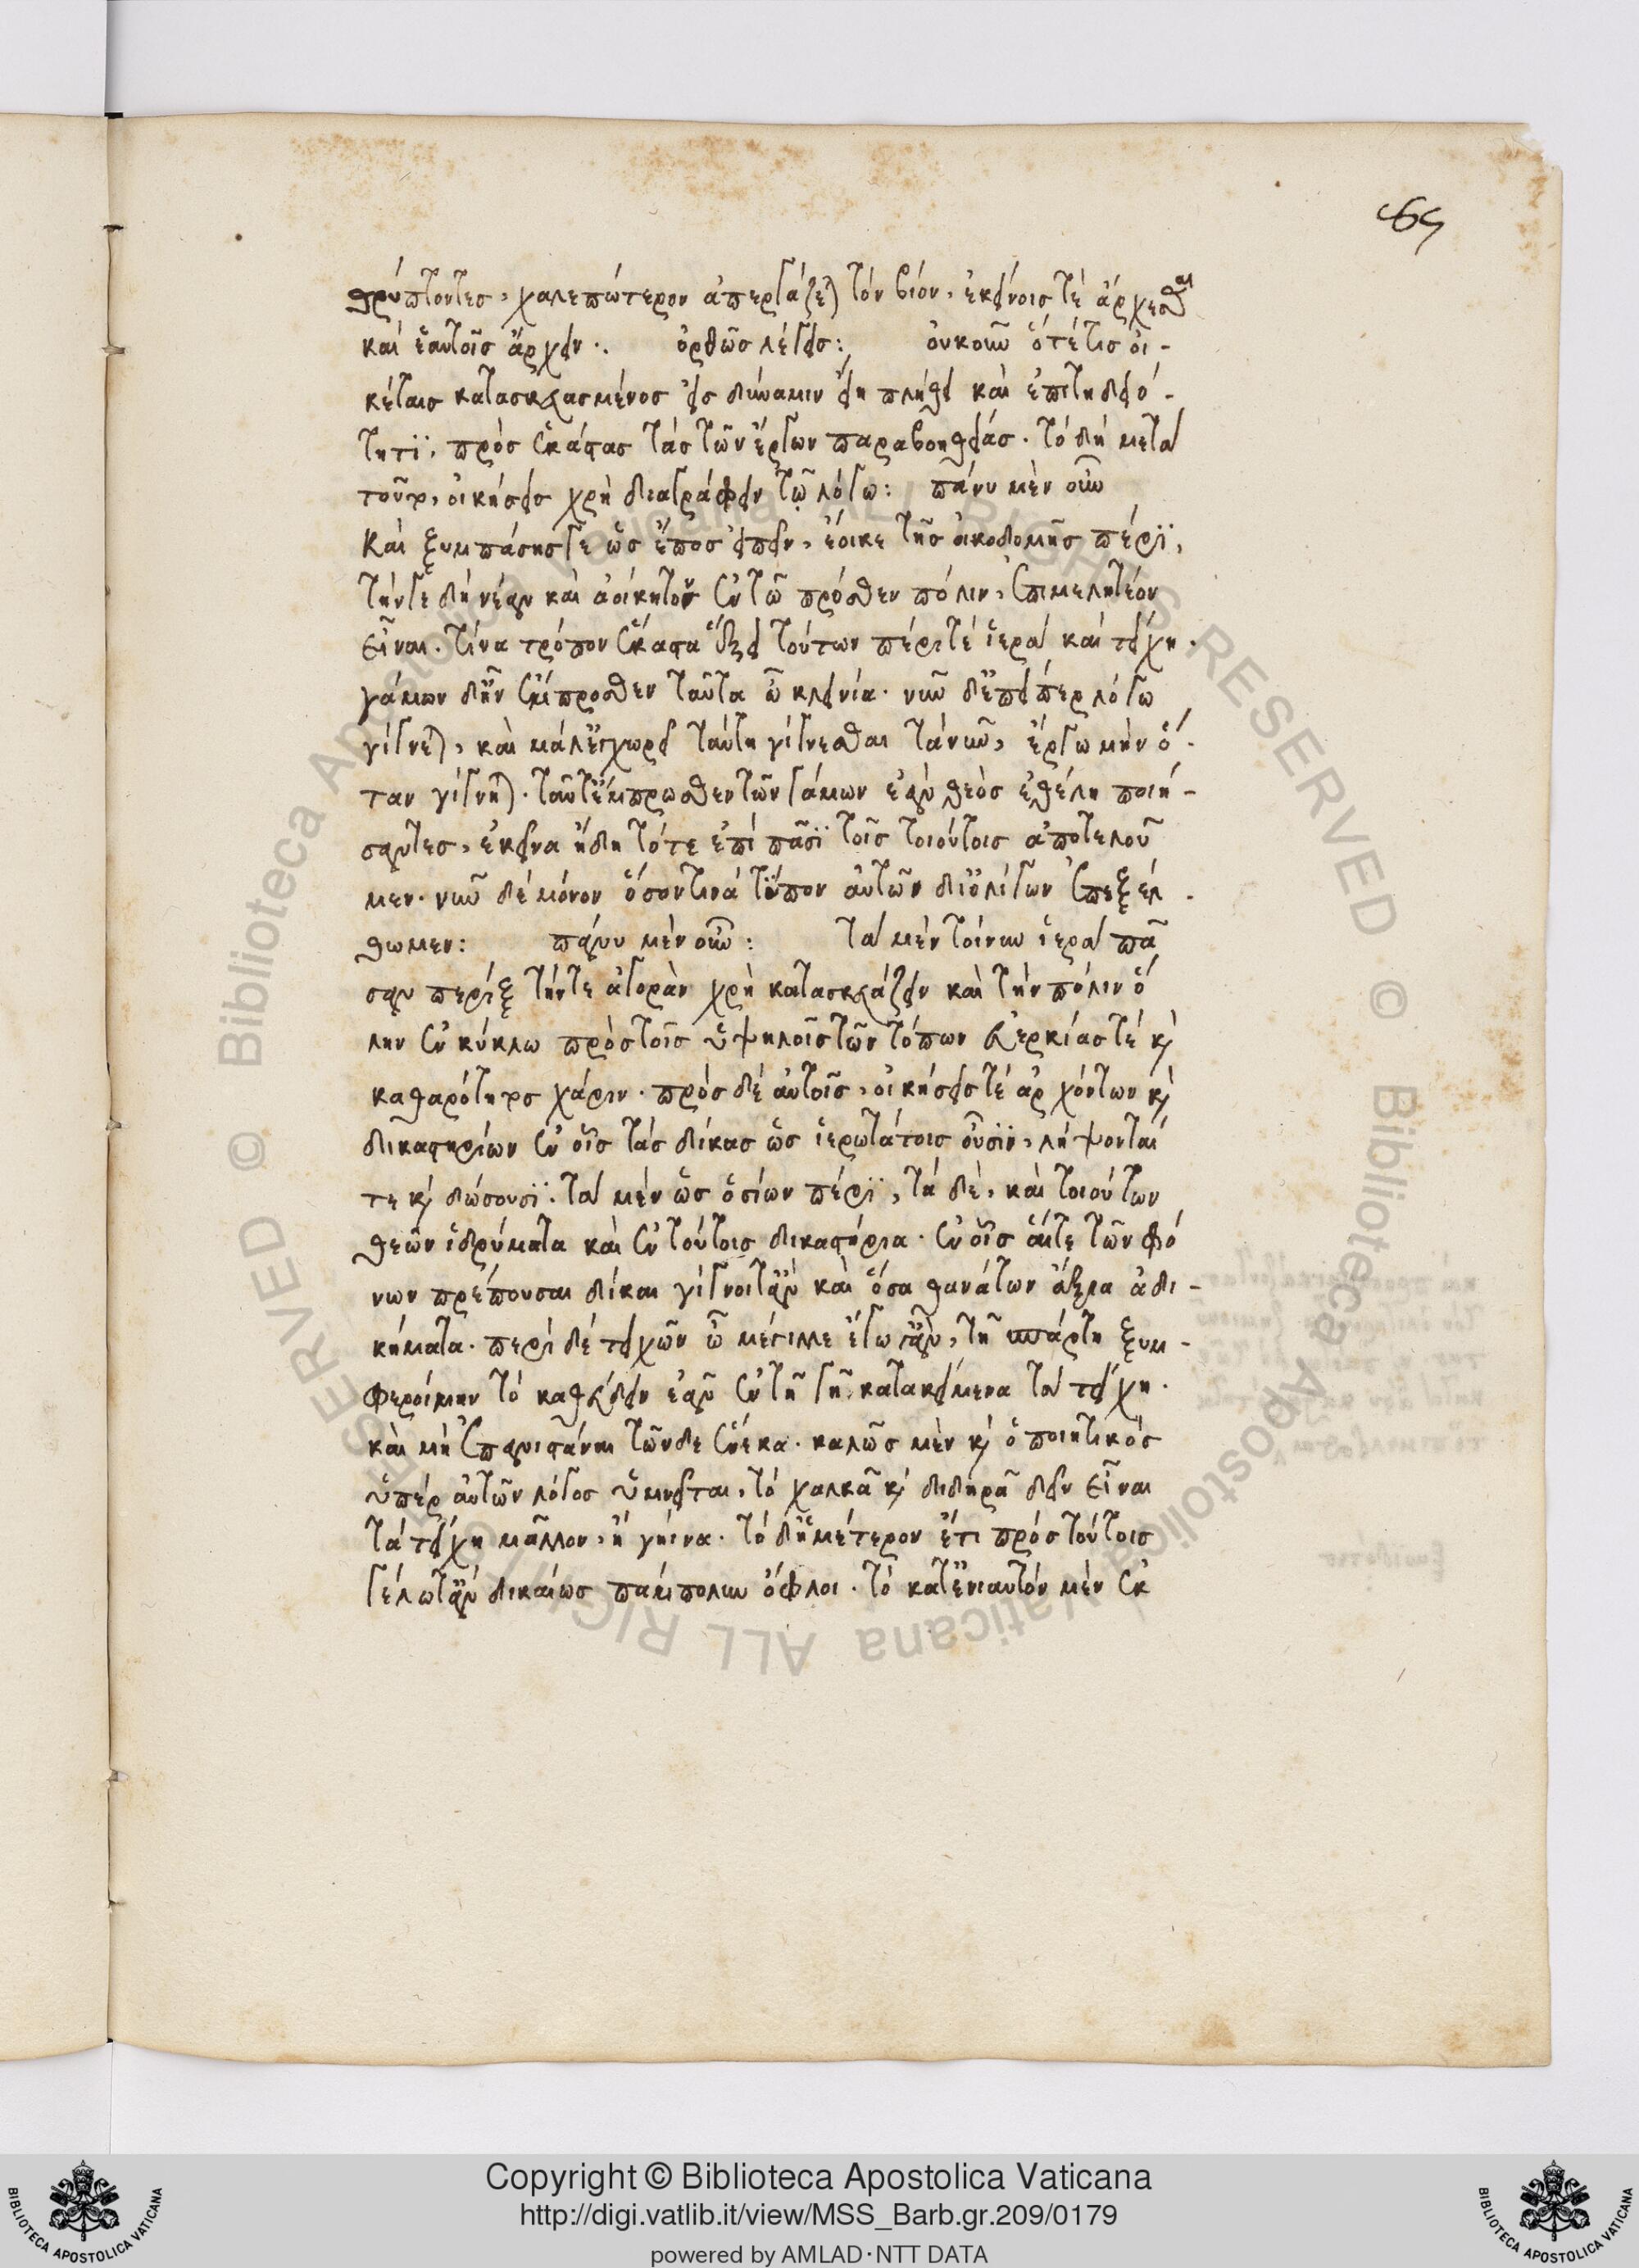 69
θρύπτοντες, χαλεπώτερον ἀπεργάζεται τὸν βίον, ἐκείνοις τὲ ἄρχεσθαι
καὶ ἑαυτοῖς ἄρχειν. ὀρθῶς λέγεις: οὐκοῦν ὅτέ τις οἰ-
κέταις κατασκευασμένος εἰς δύναμιν εἴη πλήθει καὶ ἐπιτηδειό-
τητι, πρὸς ἑκάστας τὰς τῶν ἔργων παραβοηθείας. τὸ δὴ μετὰ
τοῦτο, οἰκήσεις χρὴ διαγράφειν τῷ λόγω: πάνυ μὲν οὖν
Καὶ ξυμπάσης γε ὡς ἔπος εἰπεῖν, ἔοικε τῆς οἰκοδομῆς πέρι,
τήν γε δὴ νέαν καὶ ἀοίκητον ἐν τῶ πρόσθεν πόλιν, ἐπιμελητέον
εἶναι. τίνα τρόπον ἕκαστα ἕξει τούτων πέρι τὲ ἱερὰ καὶ τείχη.
γάμων δ' ἦν ἔμπροσθεν ταῦτα ὦ κλεινία. νῦν δ' ἐπείπερ λόγω
γίγνεται, καὶ μάλ' ἐγχωρεῖ ταύτη γίγνεσθαι τὰ νῦν, ἔργω μὴν ὅ-
ταν γίγνηται. ταῦτ' ἔμπρωσθεν τῶν γάμων ἐὰν θεὸς ἐθέλη ποιή-
σαντες, ἐκεῖνα ἤδη τότε ἐπὶ πᾶσι τοῖς τοιούτοις ἀποτελοῦ
μεν. νῦν δὲ μόνον ὅσον τινὰ τύπον αὐτῶν δι' ὀλίγων ἐπεξέλ-
θωμεν: πάνυ μὲν οὖν: τὰ μὲν τοίνυν ἱερὰ πᾶ
σαν πέριξ τήν τε ἀγορὰν χρὴ κατασκευάζειν καὶ τὴν πόλιν ὅ
λην ἐν κύκλω πρὸς τοῖς ὑψηλοῖς τῶν τόπων εὐερκίας τὲ καὶ
καθαρότητος χάριν. πρὸς δὲ αὐτοῖς, οἰκήσεις τὲ ἀρχόντων καὶ
δικαστηρίων ἐν οἷς τὰς δίκας ὡς ἱερωτάτοις οὖσιν, λήψονταί
τε καὶ δώσουσι. τὰ μὲν ὡς ὁσίων πέρι, τὰ δὲ, καὶ τοιούτων
θεῶν ἱδρύματα καὶ ἐν τούτοις δικαστήρια. ἐν οἷς αἵ τε τῶν φό
νων πρέπουσαι δίκαι γίγνοιντ' ἂν καὶ ὅσα θανάτων ἄξια ἀδι-
κήματα. περὶ δὲ τειχῶν ὦ μέγιλλε ἔγωγ' ἂν, τῇ σπάρτη ξυμ-
φεροίμην τὸ καθεύδειν ἐᾶν ἐν τῇ γῇ, κατακείμενα τὰ τείχη.
καὶ μὴ ἐπανιστάναι τῶνδε ἕνεκα. καλῶς μὲν καὶ ὁ ποιητικὸς
ὑπὲρ αὐτῶν λόγος ὑμνεῖται, τὸ χαλκᾶ καὶ σιδηρᾶ δεῖν εἶναι
τὰ τείχη μᾶλλον, ἢ γήινα. τὸ δ' ἡμέτερον ἔτι πρὸς τούτοις
γέλωτ' ἂν δικαίως πάμπολυν ὄφλοι. τὸ κατ' ἐνιαυτὸν μὲν ἐκ
Copyright © Biblioteca Apostolica Vaticana
http://digi.vatlib.it/view/MSS_Barb.gr.209/0179
powered by AMLAD·NTT DATA